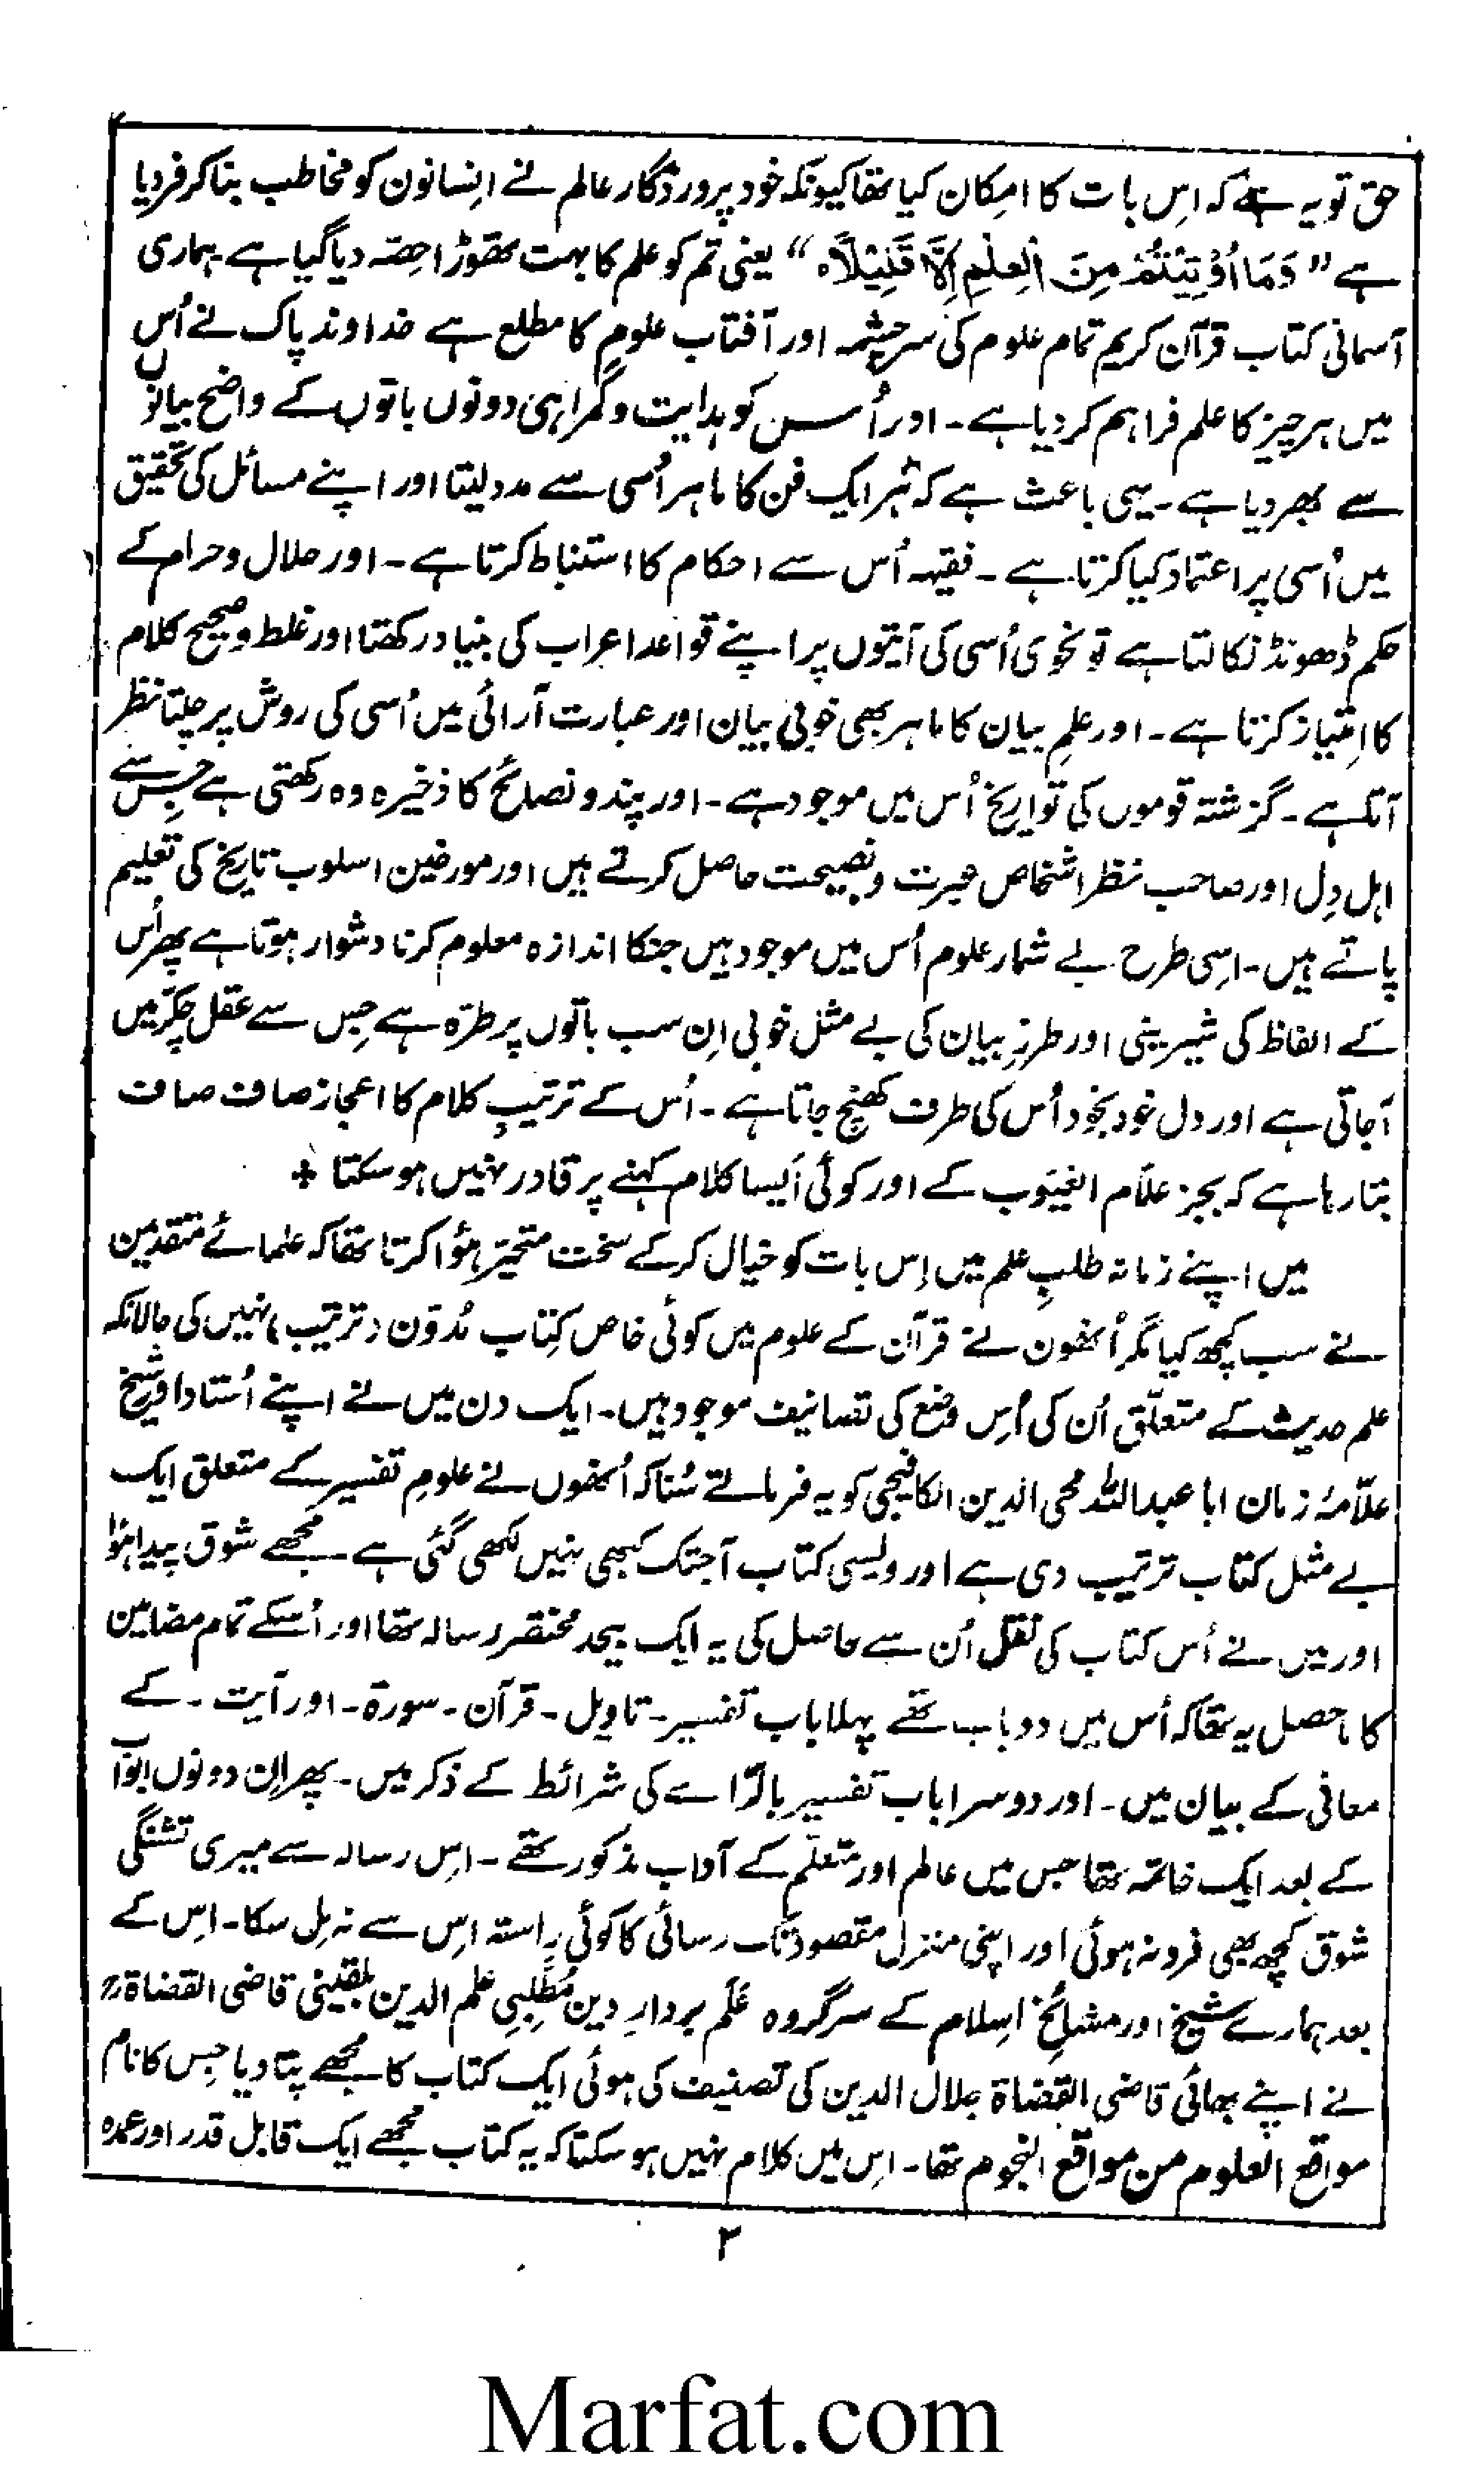 حق تو یہ ہے کہ اِس بات کا امکان کیا تھا کیونکہ خود پروردگار عالم نے انسانون کو مخاطب بنا کر فرمایا
ہے " وَمَا اُوْتِيْتُمْ مِنَ الْعِلْمِ اِلَّا قَلِيْلًا ہ " یعنی تم کو علم کا بہت تھوڑا حصّہ دیا گیا ہے۔ ہماری
آسمانی کتاب قرآن کریم تمام علوم کی سرچشمہ اور آفتاب علوم کا مطلع ہے خداوند پاک نے اُس
میں ہر چیز کا علم فراہم کر دیا ہے۔ اور اُسس کو ہدایت و گمراہی دونوں باتوں کے واضح بیانوں
سے بھر دیا ہے۔ یہی باعث ہے کہ ہر ایک فن کا ماہر اُسی سے مدد لیتا اور اپنے مسائل کی تحقیق
میں اُسی پر اعتماد کیا کرتا ہے ۔ فقیہہ اُس سے احکام کا استنباط کرتا ہے۔ اور حلال و حرام کے
حکم ڈھونڈ نکالتا ہے تو نحوی اُسی کی آیتوں پر اپنے قواعد اعراب کی بنیاد رکھتا اور غلط و صحیح کلام
کا اِمتیاز کرتا ہے۔ اور علمِ بیان کا ماہر بھی خوبیِ بیان اور عبارت آرائی میں اُسی کی روش پر چلتا نظر
آتا ہے۔ گزشتہ قوموں کی تواریخ اُس میں موجود ہے۔ اور پند و نصائح کا ذخیرہ وہ رکھتی ہے جس سے
اہل دِل اور صاحب نظر اشخاص عبرت و نصیحت حاصل کرتے ہیں اور مورخین اسلوب تاریخ کی تعلیم
پاتے ہیں۔ اسِی طرح بے شمار علوم اُس میں موجود ہیں جنکا اندازہ معلوم کرنا دشوار ہوتا ہے پھر اُس
کے الفاظ کی شیرینی اور طرزِ بیان کی بے مثل خوبی اِن سب باتوں پر طرّہ ہے جِس سے عقل چکّر میں
آجاتی ہے اور دل خود بخود اُس کی طرف کھنچ جاتا ہے۔ اُس کے ترتیبِ کلام کا اعجاز صاف صاف
بتا رہا ہے کہ بجز علاّم الغیوب کے اور کوئی اَیسا کلام کہنے پر قادر نہیں ہو سکتا +
میں اپنے زمانہ طلبِ علم میں اِس بات کو خیال کر کے سخت متحیّر ہؤا کرتا تھا کہ علمائے متقدمین
نے سب کچھ کیا مگر اُنھون نے قرآن کے علوم میں کوئی خاص کِتاب مُدوّن (ترتیب) نہیں کی حالانکہ
علم حدیث کے متعلّق اُن کی اُس وضع کی تصانیف موجود ہیں۔ ایک دن میں نے اپنے اُستاد اور شیخ
علاّمۂ زمان ابا عبداللہ محی الدین الکافیجی کو یہ فرماتے سُنا کہ اُنھوں نے علومِ تفسیر کے متعلق ایک
بے مثل کتاب ترتیب دی ہے اور ویسی کتاب آجتک کبھی نہیں لکھی گئی ہے ۔ مجھے شوق پیدا ہؤا
اور میں نے اُس کتاب کی نقل اُن سے حاصل کی یہ ایک بیحد مختصر رسالہ تھا اور اُسکے تمام مضامین
کا ماحصل یہ تھا کہ اُس میں دو باب تھے پہلا باب تفسیر۔ تاویل۔ قرآن۔ سورۃ۔ اور آیت ۔ کے
معانی کے بیان میں۔ اور دوسرا باب تفسیر بالرّاے کی شرائط کے ذکر میں۔ پھر اِن دونوں ابواب
کے بعد ایک خاتمہ تھا جس میں عالم اور متعلّم کے آداب مذکور تھے۔ اِس رسالہ سے میری تشنگی
شوق کچھ بھی فرو نہ ہوئی اور اپنی منزل مقصود تک رسائی کا کوئی راستہ اِس سے نہ مِل سکا۔ اِس کے
بعد ہمارے شیخ اور مشائخ اسلام کے سرگروہ عَلَم بردارِ دین مُطَّلِبِی علم الدین بلقینی قاضی القضاۃ
نے اپنے بھائی قاضی القضاۃ جلال الدین کی تصنیف کی ہوئی ایک کتاب کا مجھے پتا دیا جِس کا نام
مواقع العلوم من مواقع النجوم تھا۔ اِس میں کلام نہیں ہو سکتا کہ یہ کتاب مجھے ایک قابل قدر اور عمدہ
۲
Marfat.com